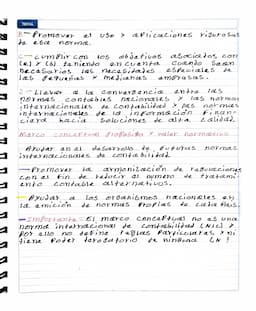 TEMA:
B- Promover el uso y aplicaciones rigurosas
de esa norma.
C- cumplir con los objetivos asociados con
(a) y (b) teniendo en cuenta cuando sean
necesarias las necesidades especiales de
las pequeñas y medianas empresas.
2- Llevar a la convergencia entre las
normas contables nacionales y las normas
internacionales de contabilidad y las normas
internacionales de la información finan-
ciera hacia soluciones de alta calidad.
Marco conceptual propósito y valor normativo
Ayudar en el desarrollo de futuras normas
internacionales de contabilidad.
- Promover la armonización de regulaciones
con el fin de reducir el número de tratami-
ento contable alternativos.
- Ayudar a los organismos nacionales en
la emisión de normas propias de cada país.
- Importante: El marco conceptual no es una
norma internacional de contabilidad (NIC) y
por ello no define reglas particulares y ni
tiene poder derogatorio de ninguna